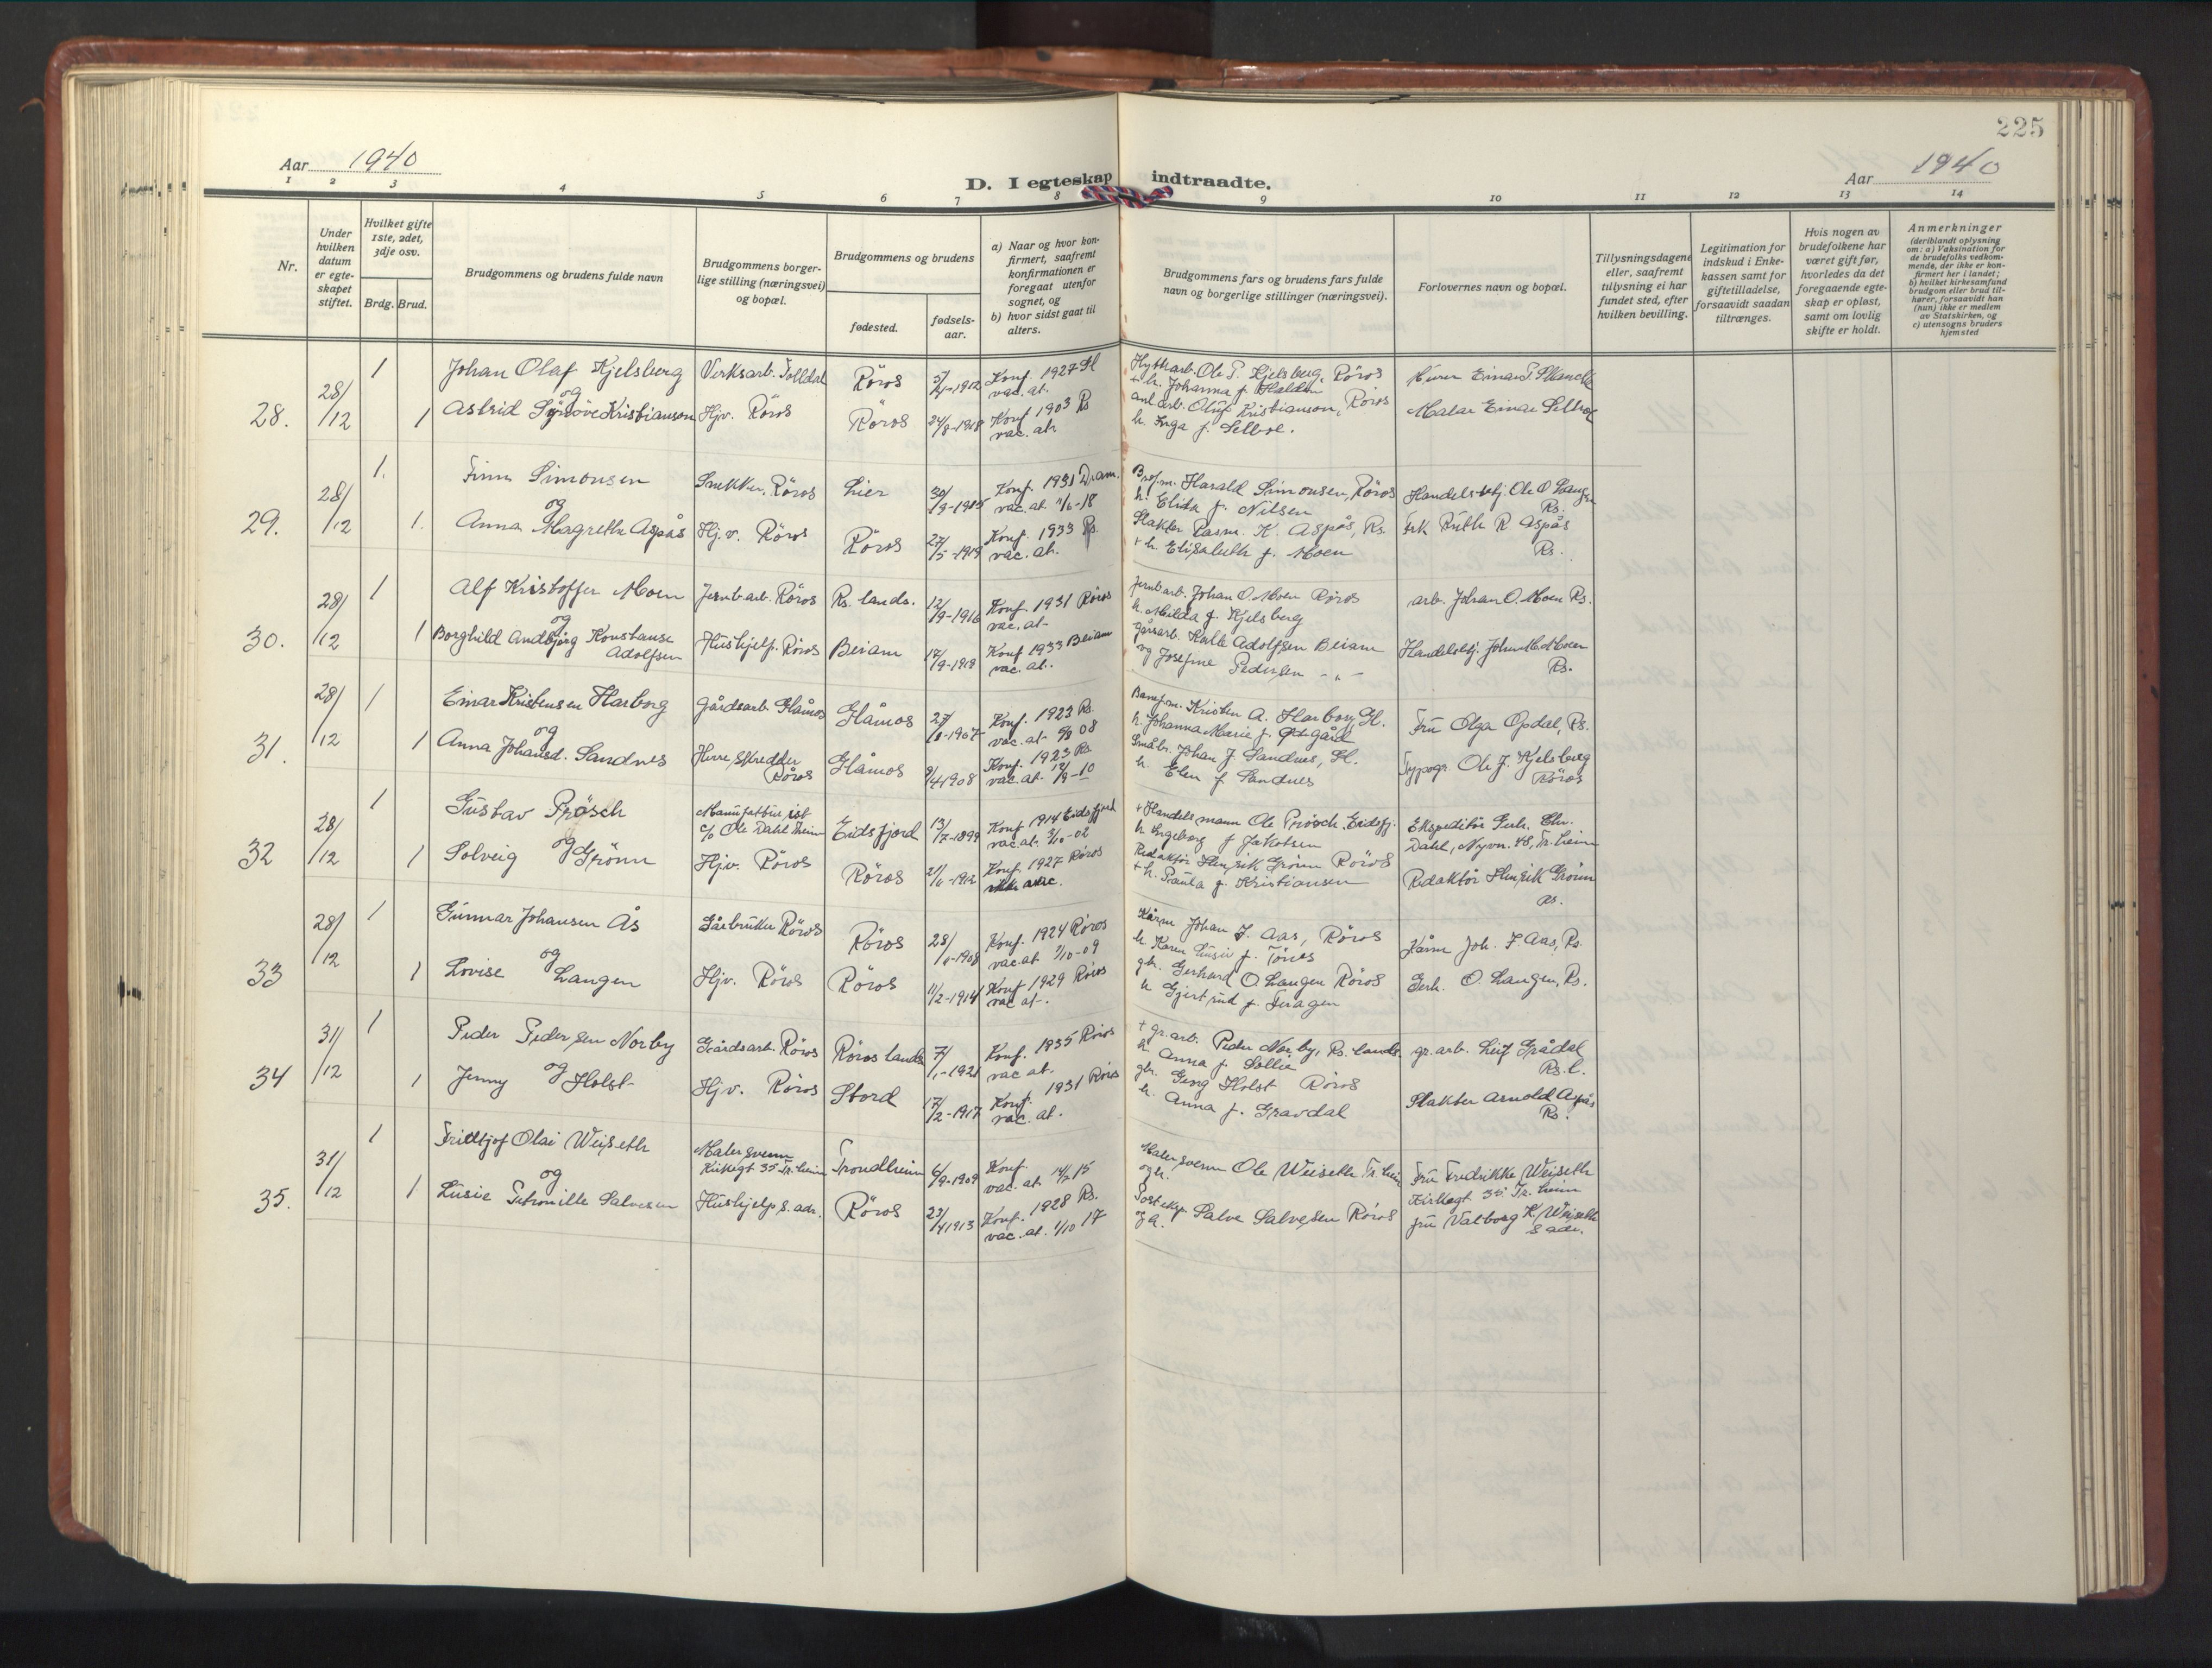 225
Aar 1940
D. I egteskap indtraadte.
Aar 1940
1 2 3 4 5 6 7 8 9 10 11 12 13 14
Nr.
Under hvilken datum er egteskapet stiftet.
Hvilket gifte 1ste, 2det, 3dje osv.
Brdg. Brud.
Brudgommens og brudens fulde navn
Brudgommens borgerlige stilling (næringsvei) og bopæl.
Brudgommens og brudens
fødested.
fødselsaar.
a) Naar og hvor konfirmert, saafremt konfirmationen er foregaat utenfor sognet, og
b) hvor sidst gaat til alters.
Brudgommens fars og brudens fars fulde navn og borgerlige stillinger (næringsvei).
Forlovernes navn og bopæl.
Tillysningsdagene eller, saafremt tillysning ei har fundet sted, efter hvilken bevilling.
Legitimation for indskud i Enkekassen samt for giftetilladelse, forsaavidt saadan tiltrænges.
Hvis nogen av brudefolkene har været gift før, hvorledes da det foregaaende egteskap er opløst, samt om lovlig skifte er holdt.
Anmerkninger
(deriblandt oplysning om: a) Vaksination for de brudefolks vedkommende, der ikke er konfirmert her i landet;
b) hvilket kirkesamfund brudgom eller brud tilhører, forsaavidt han (hun) ikke er medlem av Statskirken, og
c) utensogns bruders hjemsted
28. 28/12 1 Johan Olaf Kjelsberg Verksarb. Tolldal Röros 1912 Konf. 1927 Gl vac. at. Hyttearb. Ole P. Kjelsberg, Röros + h. Johanna f. Haldin
og
1 Astrid Kristianson Hjv. Röros Röros 24/8-1918 Konf 1903 Rs vac. at. anl. arb. Oluf Kristianson, Röros h. Inga f. Selboe. Malar Einar Selboe
29. 28/12 1. Finn Simonsen Snekker, Röros Lier 30/9-1915 Konf. 1931 Dram. vac. at. Harald Simonsen, Röros h. Elida f. Nilsen Handelsbetj. Ole O Langen Rs.
og
1. Anna Magrethe Aspås Hj.v. Röros Röros 27/5-1919 Konf. 1933 Rs. vac. at. Slakter Rasm. K. Aspås, Rs. + h. Elisabeth f. Moen frk Ruth R Aspås Rs.
30. 28/12 1 Alf Kristoffer Moen Jernb.arb. Röros Rs. lands. 12/9-1916 Konf. 1931 Röros vac. at. Jernb.arb. Johan O. Moen Röros h. Matilda f. Kjelsberg arb. Johan O. Moen Rs.
og
1 Borghild Andbjørg Konstanse Adolfsen Hushjelp. Röros Beiarn 17/9-1918 Konf 1933 Beiarn vac. at. Adolfsen Beiarn og Josefine Pedersen - " - Handelsbj. Johan M. Moen Rs.
31. 28/12 1 Einar Kristensen Harborg Gårdsarb. Glåmos Glåmos 1907 Konf. 1923 Rs. vac. at. 08 Kristen A. Harborg, Gl. h. Johanna Marie f. Fru Olga Opdal, Rs.
og
1 Anna Johansd. Sandnes Herreskredder Röros Glåmos 9/4 1908 Konf. 1923 Rs vac. at. Småbr. Johan J. Sandnes, Gl. h. Elen f. Sandnes Typogr. Ole J. Kjelsberg Röros
32 28/12 1 Gustav Prøsch c/o Ole Dahl Tr.heim Eidsfjord 13/7-1899 Konf 1914 Eidsfjord vac. at. 3/10-02 + Handelsmann Ole Prøsch Eidsfj. h Ingeborg f Jakobsen Ekspeditör Gerh. Chr. Dahl, Nyvn. 48, Tr.heim
og
1 Solveig Grönn Hjv. Röros Röros 1912 Konf. 1927 Röros ikke vac. Redaktör Henrik Grönn Röros + h. Paula f. Kristiansen Redaktör Henrik Grönn Rs.
33 28/12 1 Gunnar Johansen Ås Gårbruker Röros Röros 1908 Konf. 1924 Röros vac. at 1/10-09 Johan J. Aas, Röros h. Karen f. Tönes Joh. J Aas, Rs.
og
1 Lovise Langen Hjv. Röros Röros 11/2-1914 Konf 1929 Röros vac at. gbr. Gerhard O. Langen Röros h Gjertrud f. Feragen Gerh. O. Langen, Rs.
34 31/12 1 Peder Pedersen Norby Gårdsarb. Röros Röros lands 7/1-1921 Konf. 1935 Röros vac at. + gr. arb. Peder Norby, Rs. lands. h. Anna f. Sollie gr. arb. Leif Grådal Rs. l.
og
1 Jenny Holst Hjv. Röros Stord 17/2-1917 Konf. 1931 Röros vac. at. gbr. Georg Holst Röros h. Anna f. Gravdal Slakter Arnold Aspås Rs.
35. 31/12 1 Fridtjof Olai Weiseth Malersvenn Kirkegt 35 Tr.heim Trondheim 6/9-1909 Konf. vac. at. 15 Malersvenn Ole Weiseth Tr.heim og h. Fru Fredrikke Weiseth Kirkegt 35 Tr.heim
og
1 Lusie Petronille Salvesen Hushjelp s. adr. Röros 23/4 1913 Konf. 1928 Rs. vac. at. 1/10 17 Posteksp. Salve Salvesen Röros og h. fru Valborg K. Weiseth s adr.